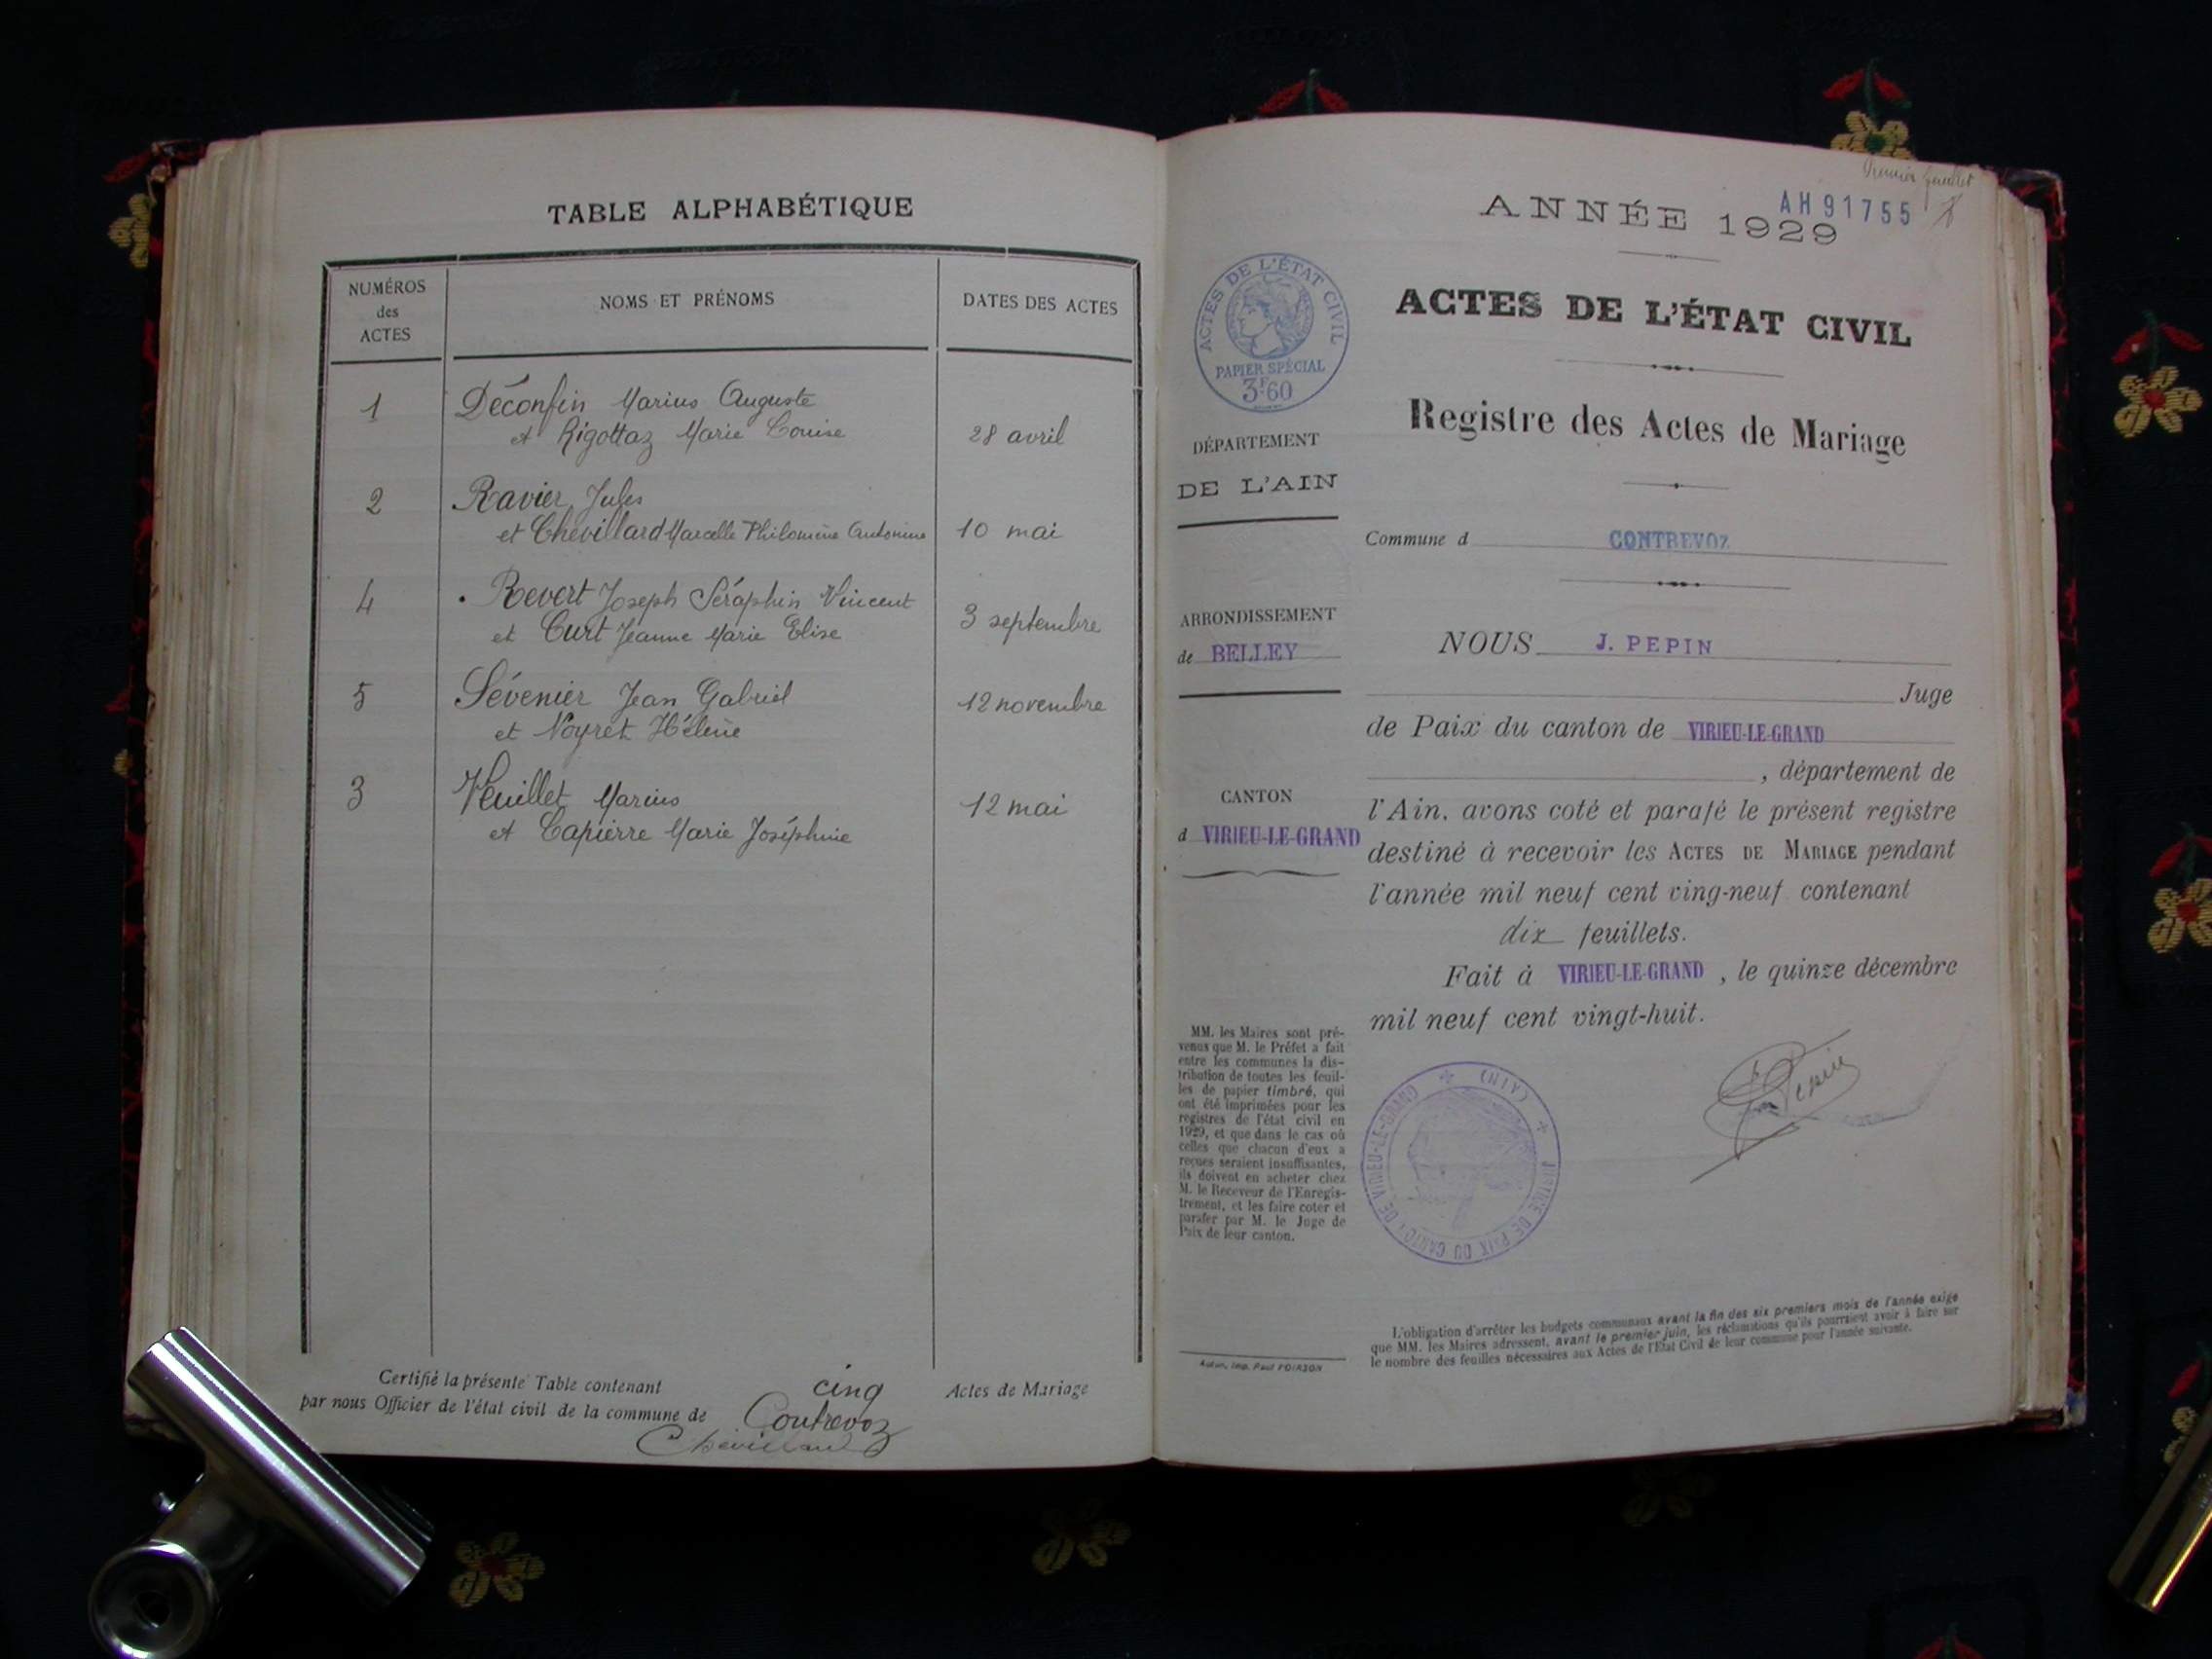 TABLE ALPHABÉTIQUE
NUMÉROS
des
ACTES
NOMS ET PRÉNOMS
DATES DES ACTES
1
Déconfin Marius Auguste
et Rigottaz Marie Louise
28 avril
2
Ravier Jules
et Chevillard Marcelle Philomène Antonine
10 mai
4
Revert Joseph Séraphin Vincent
et Curt Jeanne Marie Elise
3 septembre
5
Sévenier Jean Gabriel
et Noyret Hélène
12 novembre
3
Veuillet Marius
et Lapierre Marie Joséphine
12 mai
Certifié la présente Table contenant cinq Actes de Mariage
par nous Officier de l'état civil de la commune de Contrevoz
Chevillard
Premier feuillet
AH 91755
ANNÉE 1929
ACTES DE L'ÉTAT CIVIL
PAPIER SPÉCIAL
3F60
ACTES DE L'ÉTAT CIVIL
Registre des Actes de Mariage
DÉPARTEMENT
DE L'AIN
Commune d CONTREVOZ
ARRONDISSEMENT
de BELLEY
CANTON
d VIRIEU-LE-GRAND
NOUS J. PEPIN
Juge
de Paix du canton de VIRIEU-LE-GRAND
, département de
l'Ain, avons coté et parafé le présent registre
destiné à recevoir les ACTES DE MARIAGE pendant
l'année mil neuf cent ving-neuf contenant
dix feuillets.
Fait à VIRIEU-LE-GRAND, le quinze décembre
mil neuf cent vingt-huit.
MM. les Maires sont pré-
venus que M. le Préfet a fait
entre les communes la dis-
tribution de toutes les feuil-
les de papier timbré, qui
ont été imprimées pour les
registres de l'état civil en
1929, et que dans le cas où
celles que chacun d'eux a
reçues seraient insuffisantes,
ils doivent en acheter chez
M. le Receveur de l'Enregis-
trement, et les faire coter et
parafer par M. le Juge de
Paix de leur canton.
JUSTICE DE PAIX DU CANTON DE VIRIEU-LE-GRAND (AIN)
Pepin
L'obligation d'arrêter les budgets communaux avant la fin des six premiers mois de l'année exige
que MM. les Maires adressent, avant le premier juin, les réclamations qu'ils pourraient avoir à faire sur
le nombre des feuilles nécessaires aux Actes de l'Etat Civil de leur commune pour l'année suivante.
Autun, Imp. Paul POIRSON